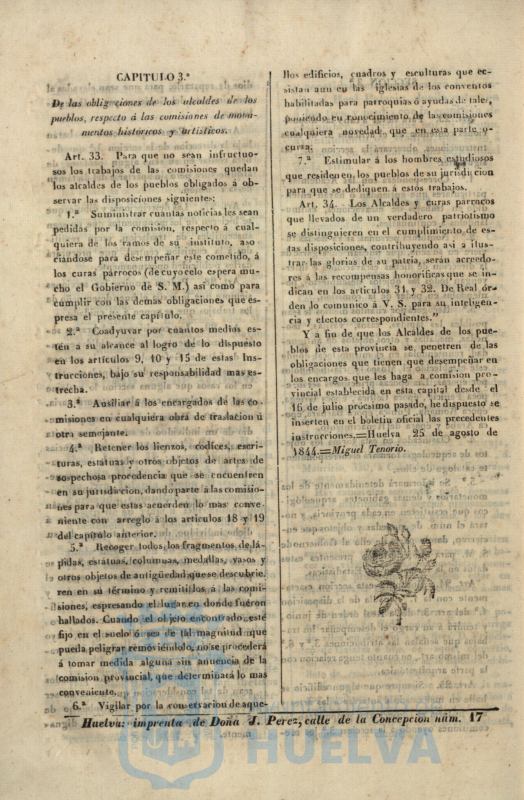 CAPITULO 3.º
De las obligaciones de los alcaldes de los
pueblos, respecto á las comisiones de monu-
mentos históricos y artísticos.
Art. 33. Para que no sean infructuo-
sos los trabajos de las comisiones quedan
los alcaldes de los pueblos obligados á ob-
servar las disposiciones siguientes:
1.ª Suministrar cuantas noticias les sean
pedidas por la comisión, respectó á cual-
quiera de los ramos de su instituto, aso
ciándose para desempeñar este cometido, á
los curas párrocos (de cuyo celo espera mu-
cho el Gobierno de S. M.) así como para
cumplir con las demas obligaciones que es-
presa el presente capítulo.
2.ª Coadyuvar por cuantos medios es-
tén a su alcance al logro de lo dispuesto
en los artículos 9, 10 y 15 de estas Ins-
trucciones, bajo su responsabilidad mas es-
trecha.
3.ª Ausiliar á los encargados de las co-
misiones en cualquiera obra de traslacion ú
otra semejante.
4.ª Retener los lienzos, codices, escri-
turas, estatuas y otros objetos de artes de
sospechosa procedencia que se encuentren
en su jurisdiccion, dando parte á las comisio-
nes para que estas acuerden lo mas conve-
niente con arreglo á los articulos 18 y 19
del capítulo anterior.
5.ª Recoger todos los fragmentos de lá-
pidas, estatuas, columnas, medallas, vasos y
otros objetos de antigüedad que se descubrie-
ren en su término y remitirlos á las comi-
siones, espresando el lugar en donde fueron
hallados. Cuando el objeto encontrado esté
fijo en el suelo ó sea de tal magnitud que
pueda peligrar removiéndolo, no se procederá
á tomar medida alguna sin anuencia de la
comision provincial, que determinatá lo mas
conveniente.
6.ª Vigilar por la conservacion de aque-
llos edificios, cuadros y esculturas que ec-
sistan aun en las iglesias de los conventos
habilitadas para parroquias ó ayudas de tales,
poniendo en conocimiento de las comisiones
cualquiera novedad que en esta parte o-
curra.
7.ª Estimular á los hombres estudiosos
que residen en los pueblos de su jurisdicion
para que se dediquen á estos trabajos.
Art. 34. Los Alcaldes y curas parrocos
que llevados de un verdadero patriotismo
se distinguieren en el cumplimiento de es-
tas disposiciones, contribuyendo asi a ilus-
trar las glorias de su patria, serán acreedo-
res á las recompensas honoríficas que se in-
dican en los artículos 31 y 32. De Real ór-
den lo comunico á V. S. para su inteligen-
cia y efectos correspondientes."
Y a fin de que los Alcaldes de los pue-
blos de esta provincia se penetren de las
obligaciones que tienen que desempeñar en
los encargos que les haga a comision pro-
vincial establecida en esta capital desde el
16 de julio prócsimo pasado, he dispuesto se
inserten en el boletin oficial las precedentes
instrucciones.=Huelva 25 de agosto de
1844.=Miguel Tenorio.
Huelva: imprenta de Doña J. Perez, calle de la Concepcion núm. 17
HUELVA